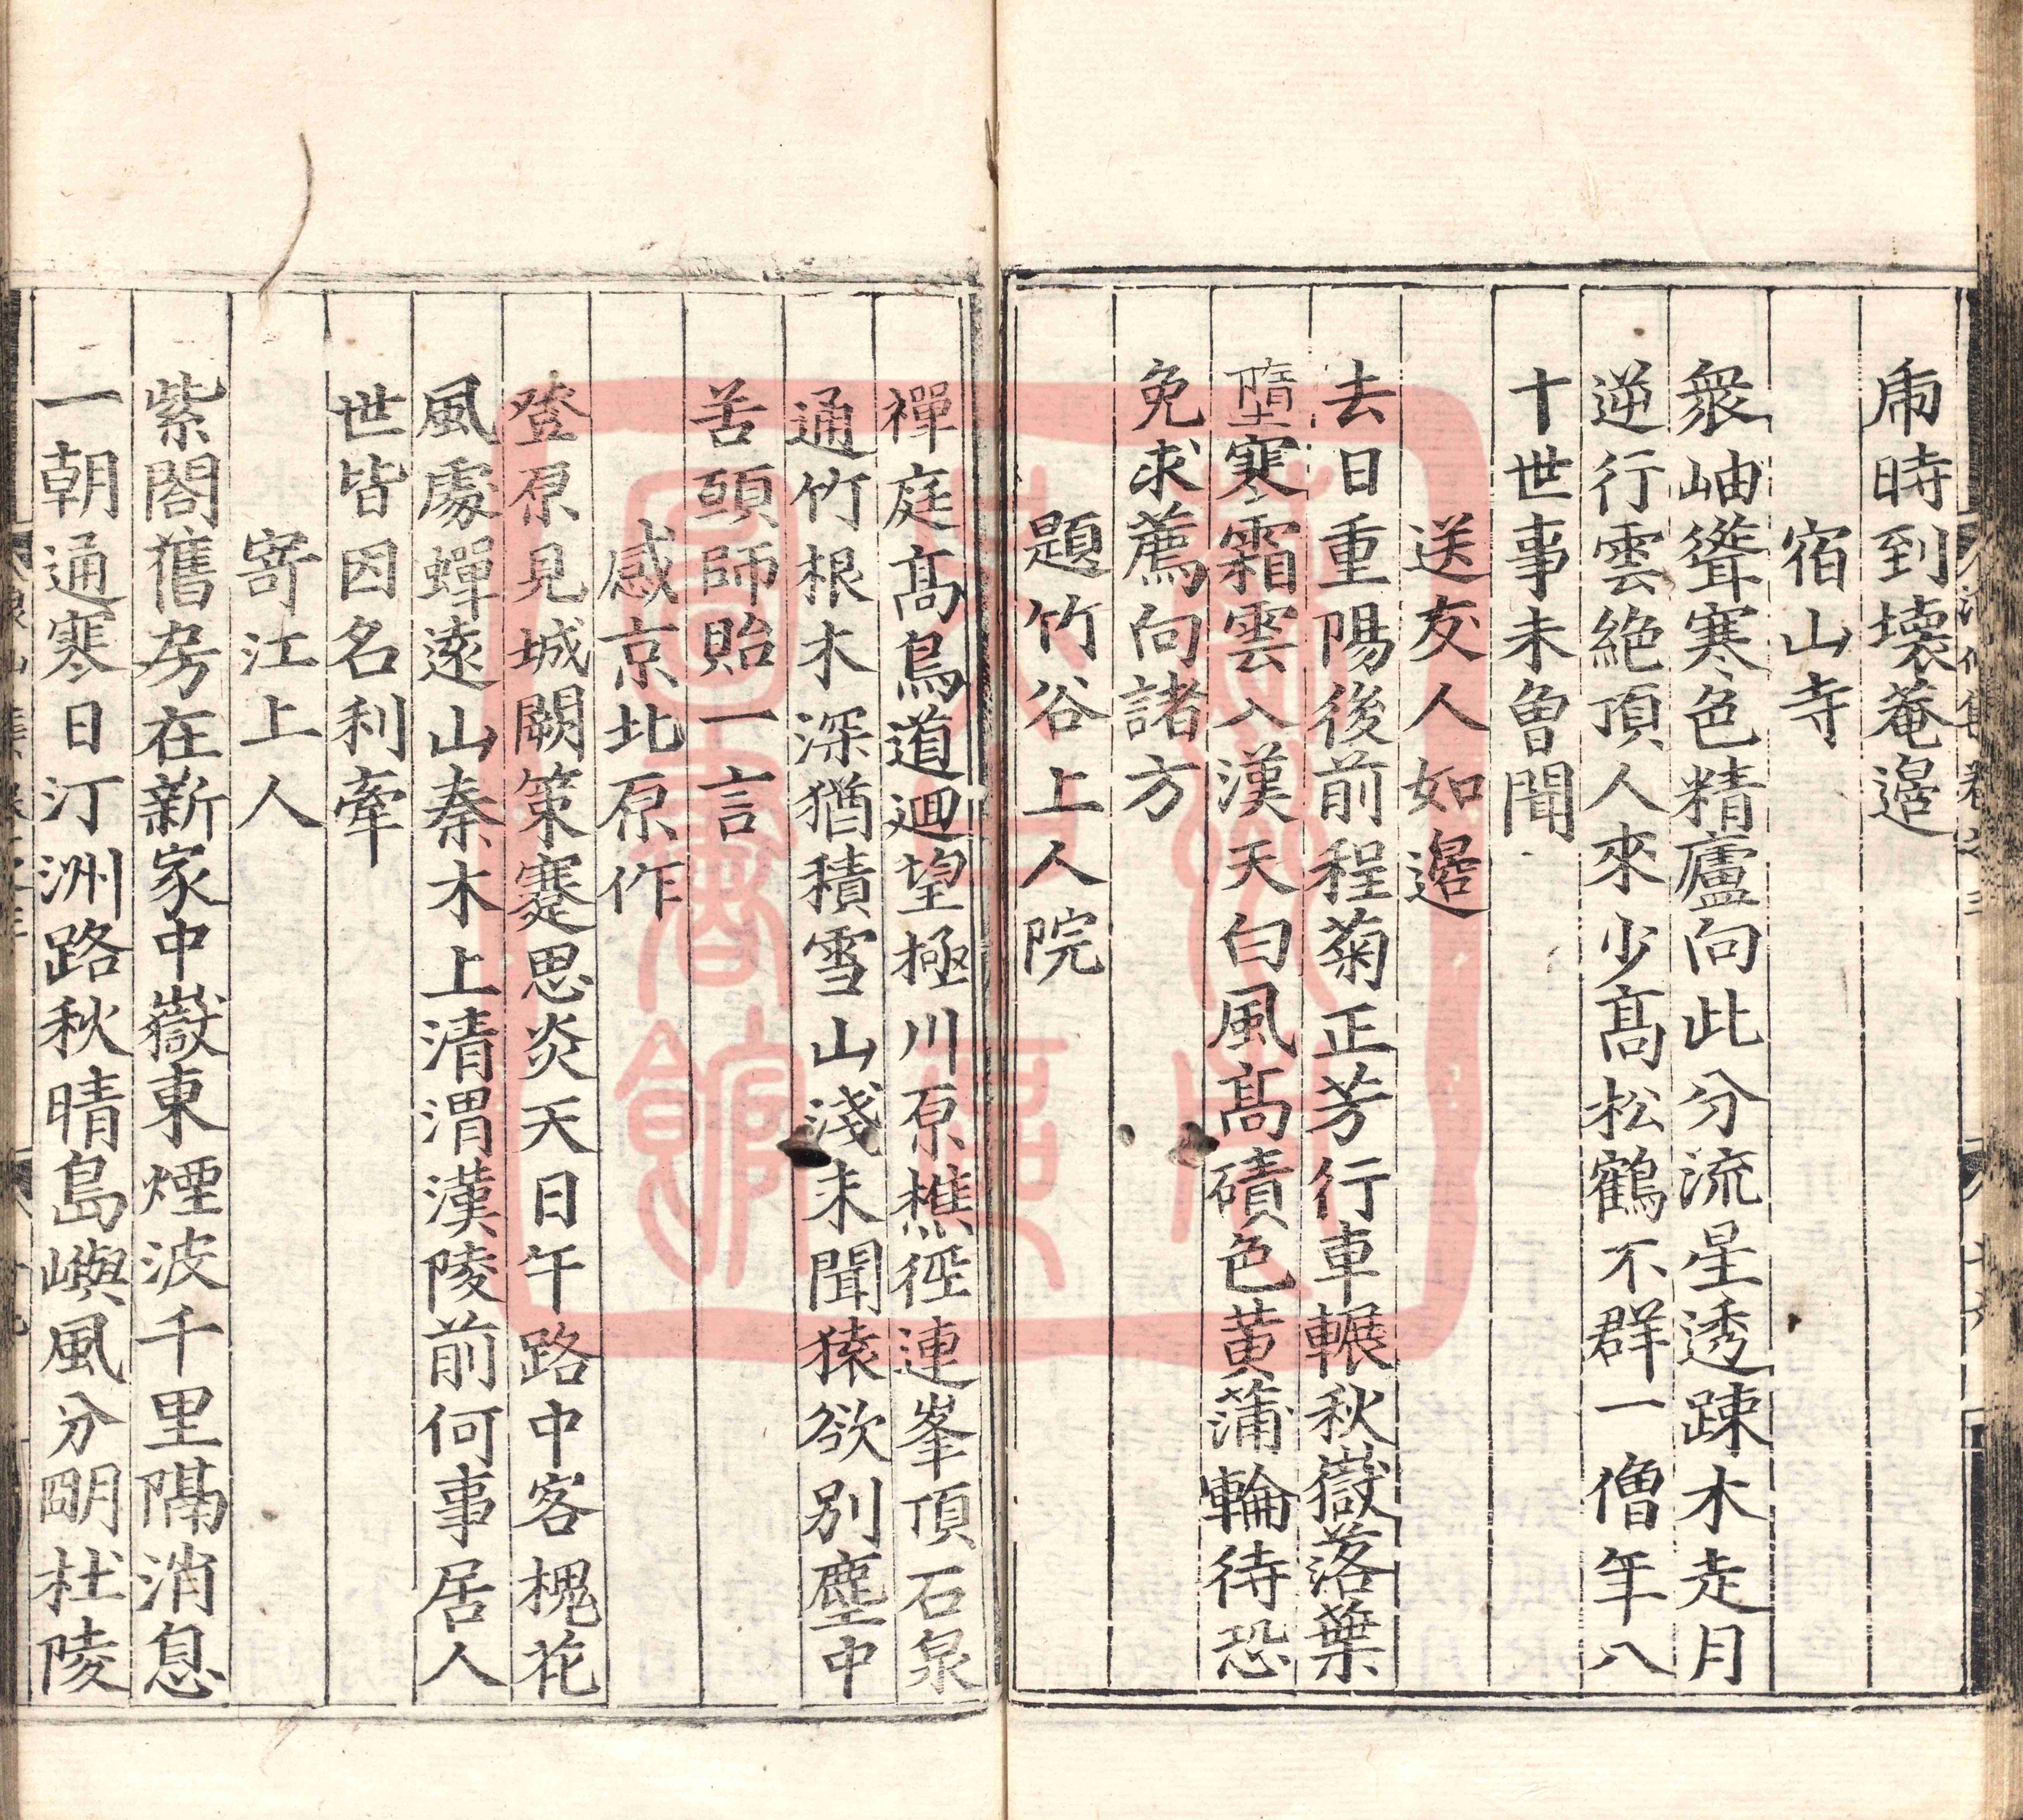 乕時到壊菴邉
宿山寺
衆岫聳寒色精廬向此分流星透踈木走月
逆行雲絶頂人來少髙松鶴不群一僧年八
十世事未曽聞
送友人如邉
去日重陽後前程菊正芳行車輾秋嶽落葉
墮寒霜雲入漢天白風髙磧色黄蒲輪待恐
免求薦向諸方
題竹谷上人院
禪庭髙鳥道迴望極川原樵徑連峯頂石泉
通竹根木深猶積雪山淺未聞猿欲别塵中
苦頭師貽一言
感京北原作
登原見城闕策蹇思炎天日午路中客槐花
風處蟬逺山秦木上清渭漢陵前何事居人
世皆因名利牽
寄江上人
紫閣舊房在新家中嶽東煙波千里隔消息
一朝通寒日汀洲路秋晴島嶼風分明杜陵